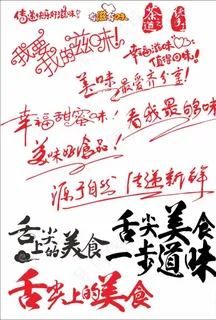 传递快乐好滋味!
滋味
茶之道
我要我的滋味!
幸福滋味
值得回味!
美味
最爱齐分享!
幸福甜蜜味!
看我最够味
美味好食品!
源于自然 传递新鲜
舌尖上的美食
舌尖美食
一步道味
舌尖上的美食